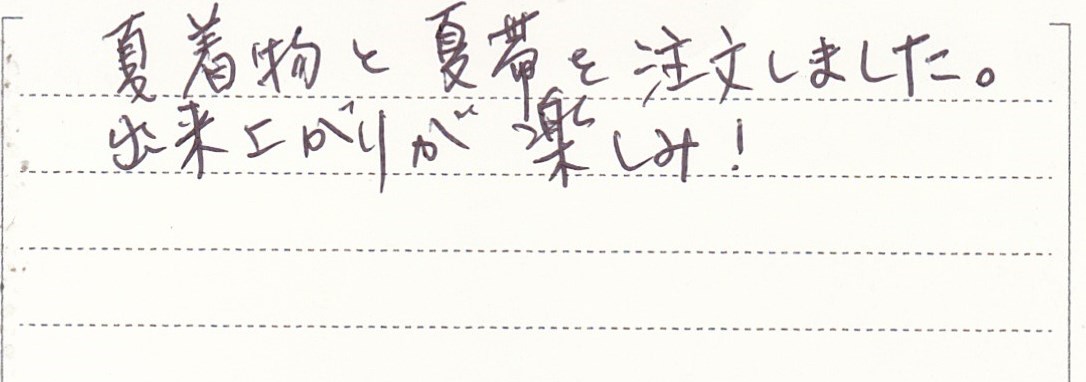 夏着物と夏帯を注文しました。
出来上がりが楽しみ!